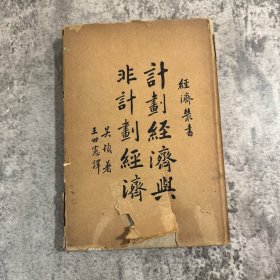 經濟叢書
計劃經濟與
非計劃經濟
吴頎著
王世憲譯